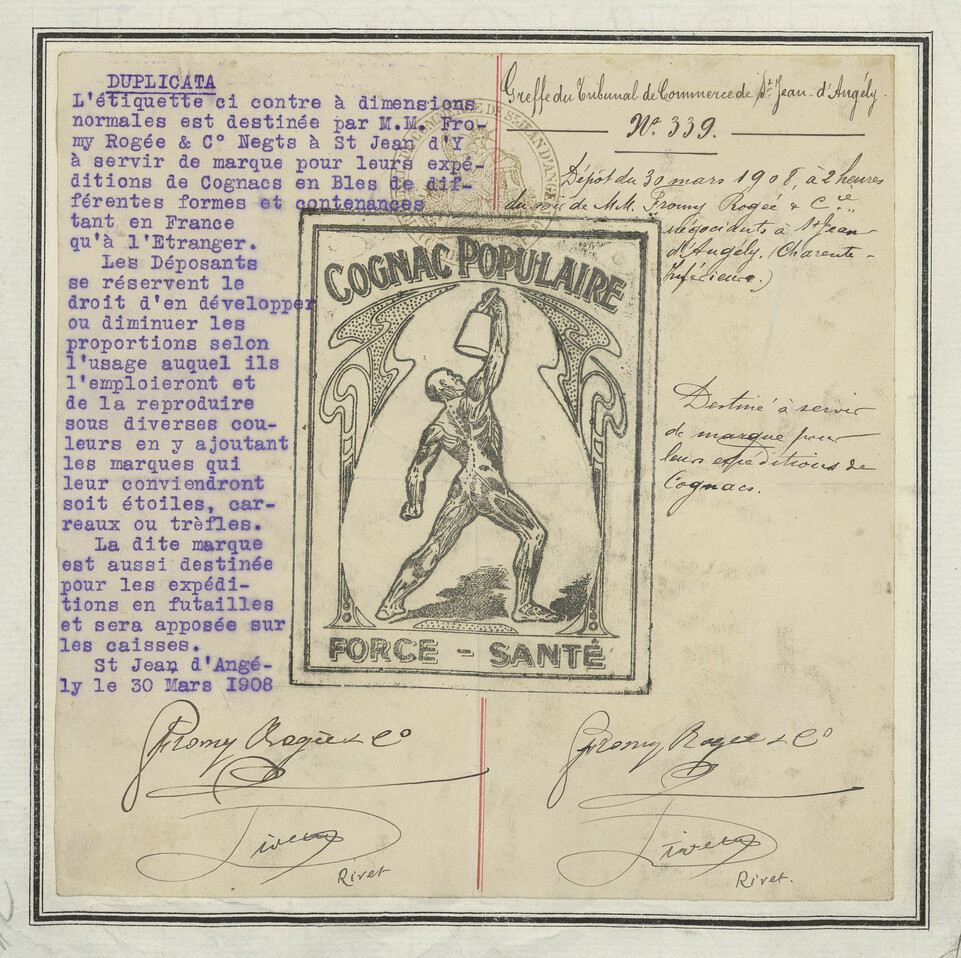 DUPLICATA
L'étiquette ci contre à dimensions
normales est destinée par M.M. Fro-
my Rogée & C° Negts à St Jean d'Y
à servir de marque pour leurs expé-
ditions de Cognacs en Bles de dif-
férentes formes et contenances
tant en France
qu'à l'Etranger.
Les Déposants
se réservent le
droit d'en développer
ou diminuer les
proportions selon
l'usage auquel ils
l'emploieront et
de la reproduire
sous diverses cou-
leurs en y ajoutant
les marques qui
leur conviendront
soit étoiles, car-
reaux ou trèfles.
La dite marque
est aussi destinée
pour les expédi-
tions en futailles
et sera apposée sur
les caisses.
St Jean d'Angé-
ly le 30 Mars 1908
Fromy Rogée & C°
Rivet
Greffe du Tribunal de Commerce de St Jean-d'Angély.
N° 339.
Dépôt du 30 mars 1908, à 2 heures
du soir de M.M. Fromy Rogée & Cie
négociants à St Jean
d'Angély, (Charente-
Inférieure.)
Destiné à servir
de marque pour
leurs expéditions de
Cognacs.
Fromy Rogée & C°
Rivet.
COGNAC POPULAIRE
FORCE - SANTÉ